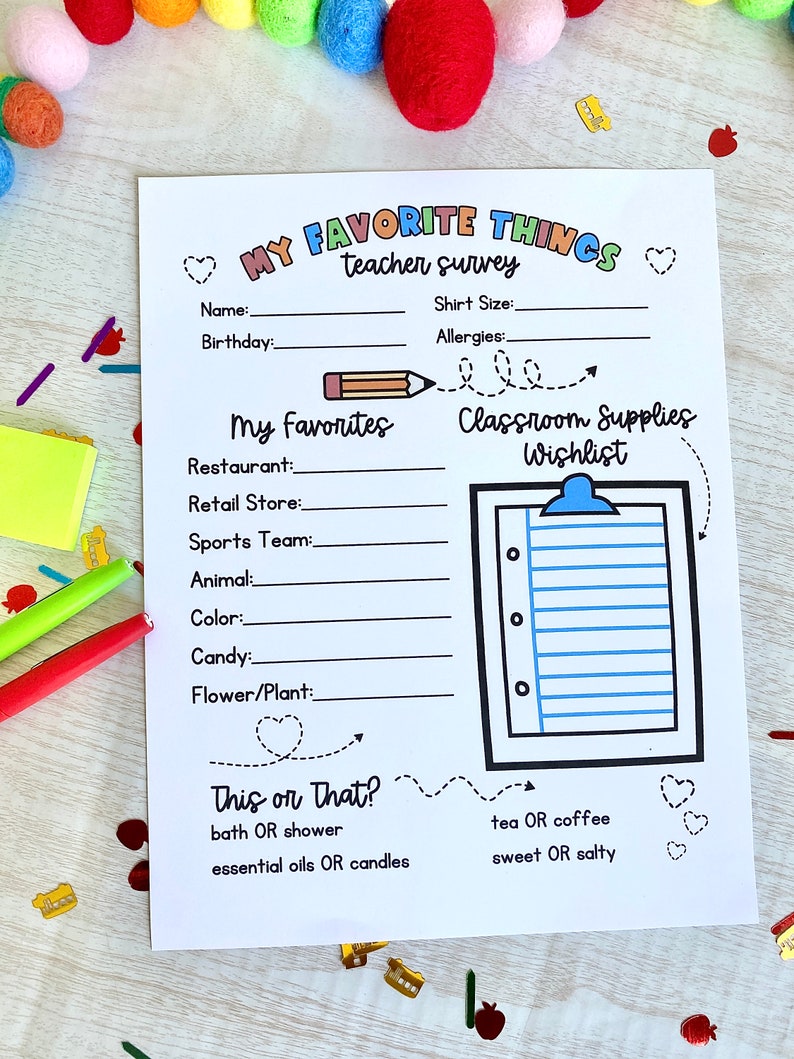 MY FAVORITE THINGS
teacher survey
Name:
Shirt Size:
Birthday:
Allergies:
My Favorites
Classroom Supplies
Wishlist
Restaurant:
Retail Store:
Sports Team:
Animal:
Color:
Candy:
Flower/Plant:
This or That?
bath OR shower
tea OR coffee
essential oils OR candles
sweet OR salty